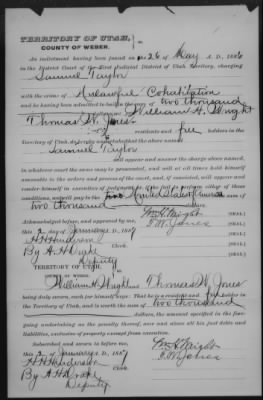 TERRITORY OF UTAH,
COUNTY OF WEBER.
An indictment having been found on the 26 day of May A. D., 1886
in the District Court of the First Judicial District of Utah Territory, charging
Samuel Taylor
with the crime of Unlawful Cohabitation
and he having been admitted to bail in the sum of two thousand
William H. Wright
Thomas W. Jones
residents and free holders in the
Territory of Utah hereby undertake that the above named
Samuel Taylor
will appear and answer the charge above named,
in whatever court the same may be prosecuted, and will at all times hold himself
amenable to the orders and process of the court, and if convicted, will appear and
render himself in execution of judgment; if he fail to perform either of these
conditions, we will pay to the United States of America
two thousand
Acknowledged before, and approved by me,
this 2 day of January A. D., 1887
H H Henderson
Clerk.
By A H
Deputy
Wm H Wright [SEAL.]
T. W. Jones [SEAL.]
[SEAL.]
[SEAL.]
TERRITORY OF UTAH,
COUNTY OF WEBER.
William H. Wright and Thomas W. Jones
being duly sworn, each for himself says: That he is a resident and free holder in
the Territory of Utah, and is worth the sum of two thousand
dollars, the amount specified in the fore-
going undertaking as the penalty thereof, over and above all his just debts and
liabilities, exclusive of property exempt from execution.
Subscribed and sworn to before me,
this 2 day of January A. D., 1887
H H Henderson
Clerk.
By A H
Deputy
Wm H Wright
T. W. Jones